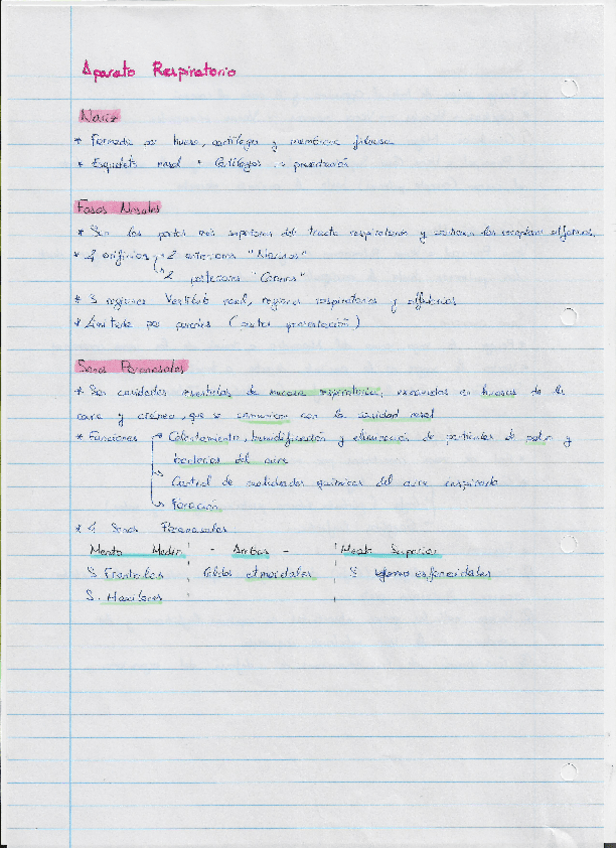 Aparato Respiratorio
Nariz
* Formada por hueso, cartílagos y membrana fibrosa
* Esqueleto nasal * Cartílagos presentación
Fosas Nasales
* Son las partes más superiores del tracto respiratorio y contienen los receptores olfatorios.
* 4 orificios → 2 anteriores "Narinas"
↳ 2 posteriores "Coanas"
* 3 regiones Vestíbulo nasal, regiones respiratorias y olfatorias
* Limitada por paredes ( presentación )
Senos Paranasales
* Son cavidades revestidas de mucosa respiratoria, excavadas en huesos de la
cara y cráneo, que se comunican con la cavidad nasal
* Funciones → Calentamiento, humidificación y eliminación de partículas de polvo y
bacterias del aire
↳ Control de cualidades químicas del aire inspirado
↳ Fonación
* 4 Senos Paranasales
Meato Medio - Ambos - Meato Superior
S Frontales Celdas etmoidales S esfenoidales
S. Maxilares